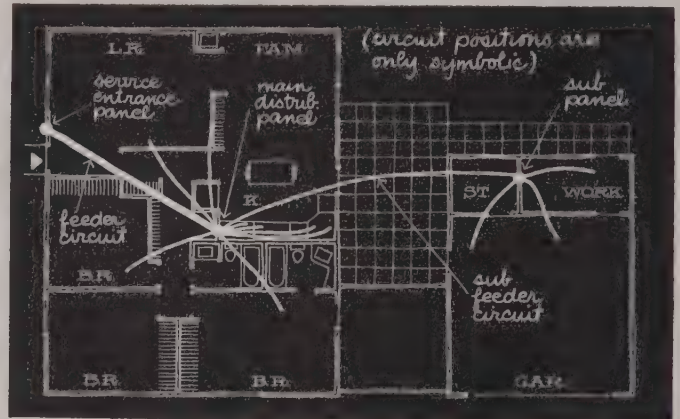 L.R.
FAM
(circuit positions are
only symbolic)
service
entrance
panel
main
distrib.
panel
sub
panel
K.
ST
WORK
feeder
circuit
sub
feeder
circuit
BR
BR
BR
GAR